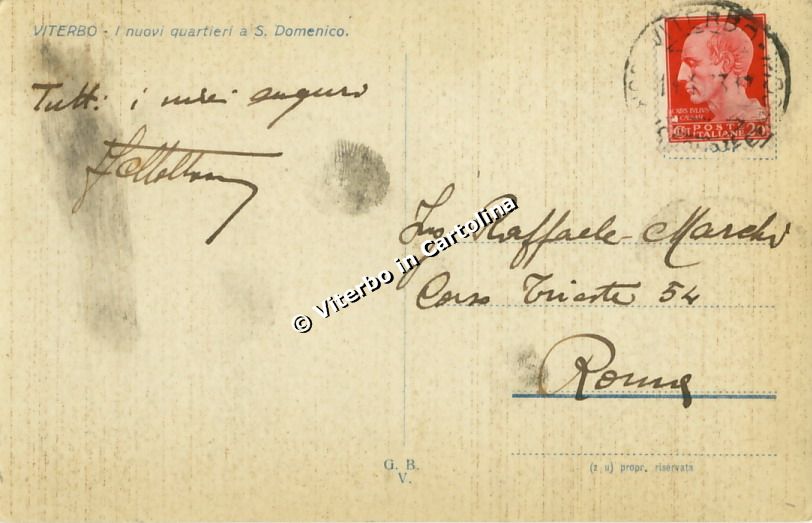 VITERBO - I nuovi quartieri a S. Domenico.
Tutti i miei auguri
VITERBO
CAIUS IULIUS
CAESAR
POSTE
ITALIANE
20
Ing Raffaele Marchi
Corso Trieste 54
Roma
© Viterbo in Cartolina
G. B.
V.
(z u) propr. riservata